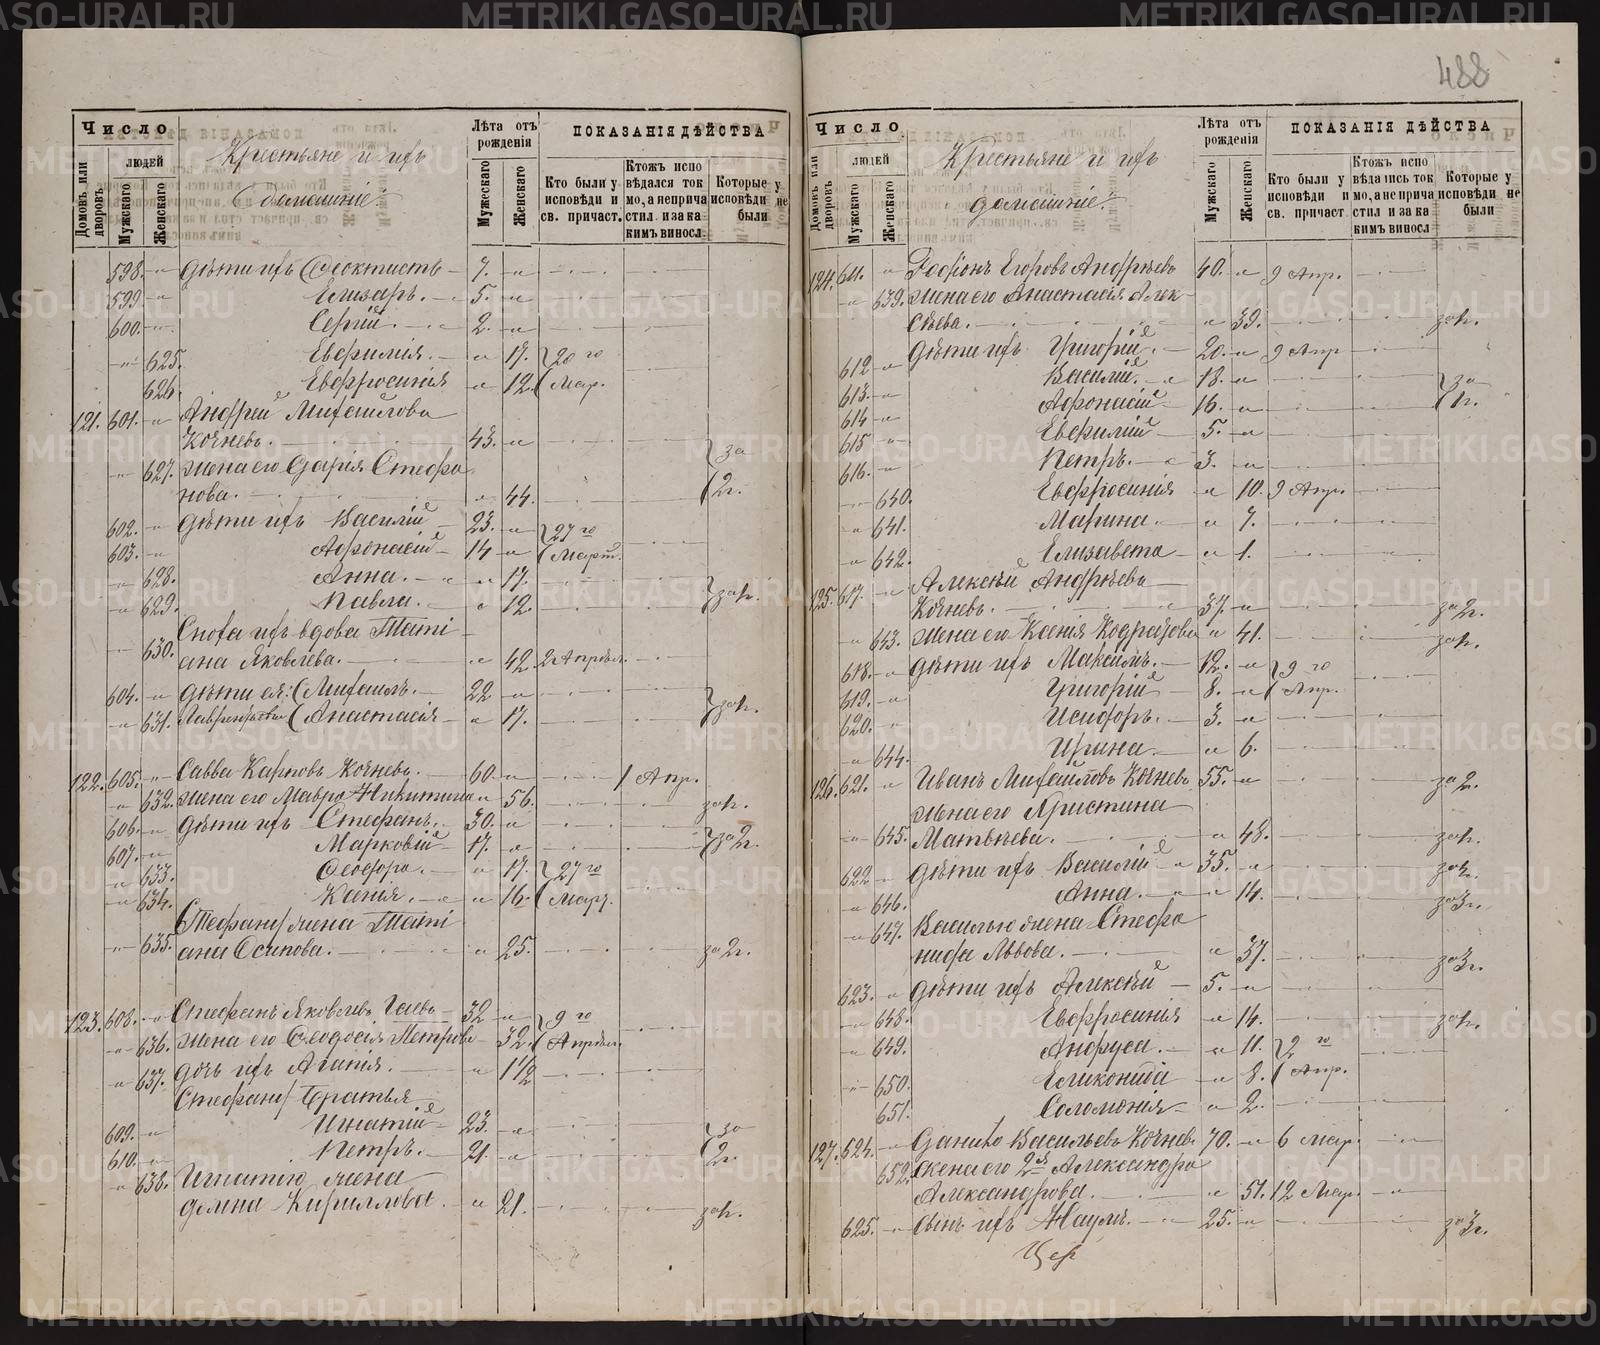 488
Число
людей
Домовъ или дворовъ
Мужскаго
Женскаго
Крестьяне и ихъ
домашніе
Лѣта отъ рожденія
Мужскаго
Женскаго
ПОКАЗАНІЯ ДѢЙСТВА
Кто были у исповѣди и св. причаст.
Ктожъ исповѣдался токмо, а не причастил и за какимъ виносл.
Которые у исповѣди не были
598. дѣти ихъ Феоктистъ 7.
599 Елизаръ. 5.
600. Сергій. 2.
625. Евфимія. 17. 20 го
626. Евфросинія 12. Мар.
121. 601. Андрей Михайлова
Кочневъ. 43.
627. жена его Дарія Стефа
нова. 44. за 2г.
602. дѣти ихъ Василій 23. 27 го
603. Афонасій 14 Март.
628. Анна. 17.
629. Павла. 12. за 1г.
Сноха ихъ вдова Тати
630. ана Яковлева. 42. 2 Апрѣля
604. дѣти ея: Михаилъ. 22
631. Анастасія 17. за 1г.
122. 605. Савва Карповъ Кочневъ. 60. 1 Апр.
632. жена его Мавра Никитина 56. за 1г.
606. дѣти ихъ Стефанъ. 30.
607. Марковій 17. за 2г.
633. Феодора. 17. 27 го
634. Ксенія. 16. Мар.
Стефану жена Тати
635. ана Осипова. 25. за 2г.
123. 608. Стефанъ Яковлевъ 32 9 го
636. жена его Феодосія Петрова 32. Апрѣля
637. дочь ихъ Агапія. 1 1/2
Стефану братья
609. Игнатій 23. за
610. Петръ. 21. 2г.
638. Игнатію жена
Домна Кириллова. 21. за 1г.
Число
людей
Домовъ или дворовъ
Мужскаго
Женскаго
Крестьяне и ихъ
домашніе.
Лѣта отъ рожденія
Мужскаго
Женскаго
ПОКАЗАНІЯ ДѢЙСТВА
Кто были у исповѣди и св. причаст.
Ктожъ исповѣдались токмо, а не причастил и за какимъ виносл.
Которые у исповѣди не были
124. 611. Родіонъ Егоровъ Андрѣева 40. 9 Апр.
639. жена его Анастасія Алек-
сѣева. 39. за 1г.
612 дѣти ихъ Григорій. 20. 9 Апр
613. Василій. 18. за
614 Афонасій 16. 1г.
615 Евфимій 5.
616. Петръ. 3.
640. Евфросинія 10. 9 Апр.
641. Марина. 7.
642. Елизавета 1.
125. 617. Алексѣй Андрѣева
Кочневъ. 37. за 2г.
643. жена его Ксенія Кодратова 41. за 1г.
618. дѣти ихъ Максимъ. 12. 9 го
619. Григорій 8. Апр.
620. Исидоръ. 3.
644. Ирина. 6.
126. 621. Иванъ Михайловъ Кочневъ 55. за 2.
жена его Христина
645. Матвѣева. 48. за 1г.
622 дѣти ихъ Василій 35. за 3г.
646. Анна. 14. за 3г.
647. Василью жена Стефа
нида Львова. 37. за 3г.
623. дѣти ихъ Алексѣй 5.
648. Евфросинія 14. за 1г.
649. 11. 2 го
650. 8. Апр.
651. Соломонія 2.
127. 524. Данило Васильевъ Кочнев 70. 6 Мар.
652. жена его 2я Александра
Александрова. 51. 12 Мар.
625. сынъ ихъ Наумъ. 25. за 3г.
METRIKI.GASO-URAL.RU